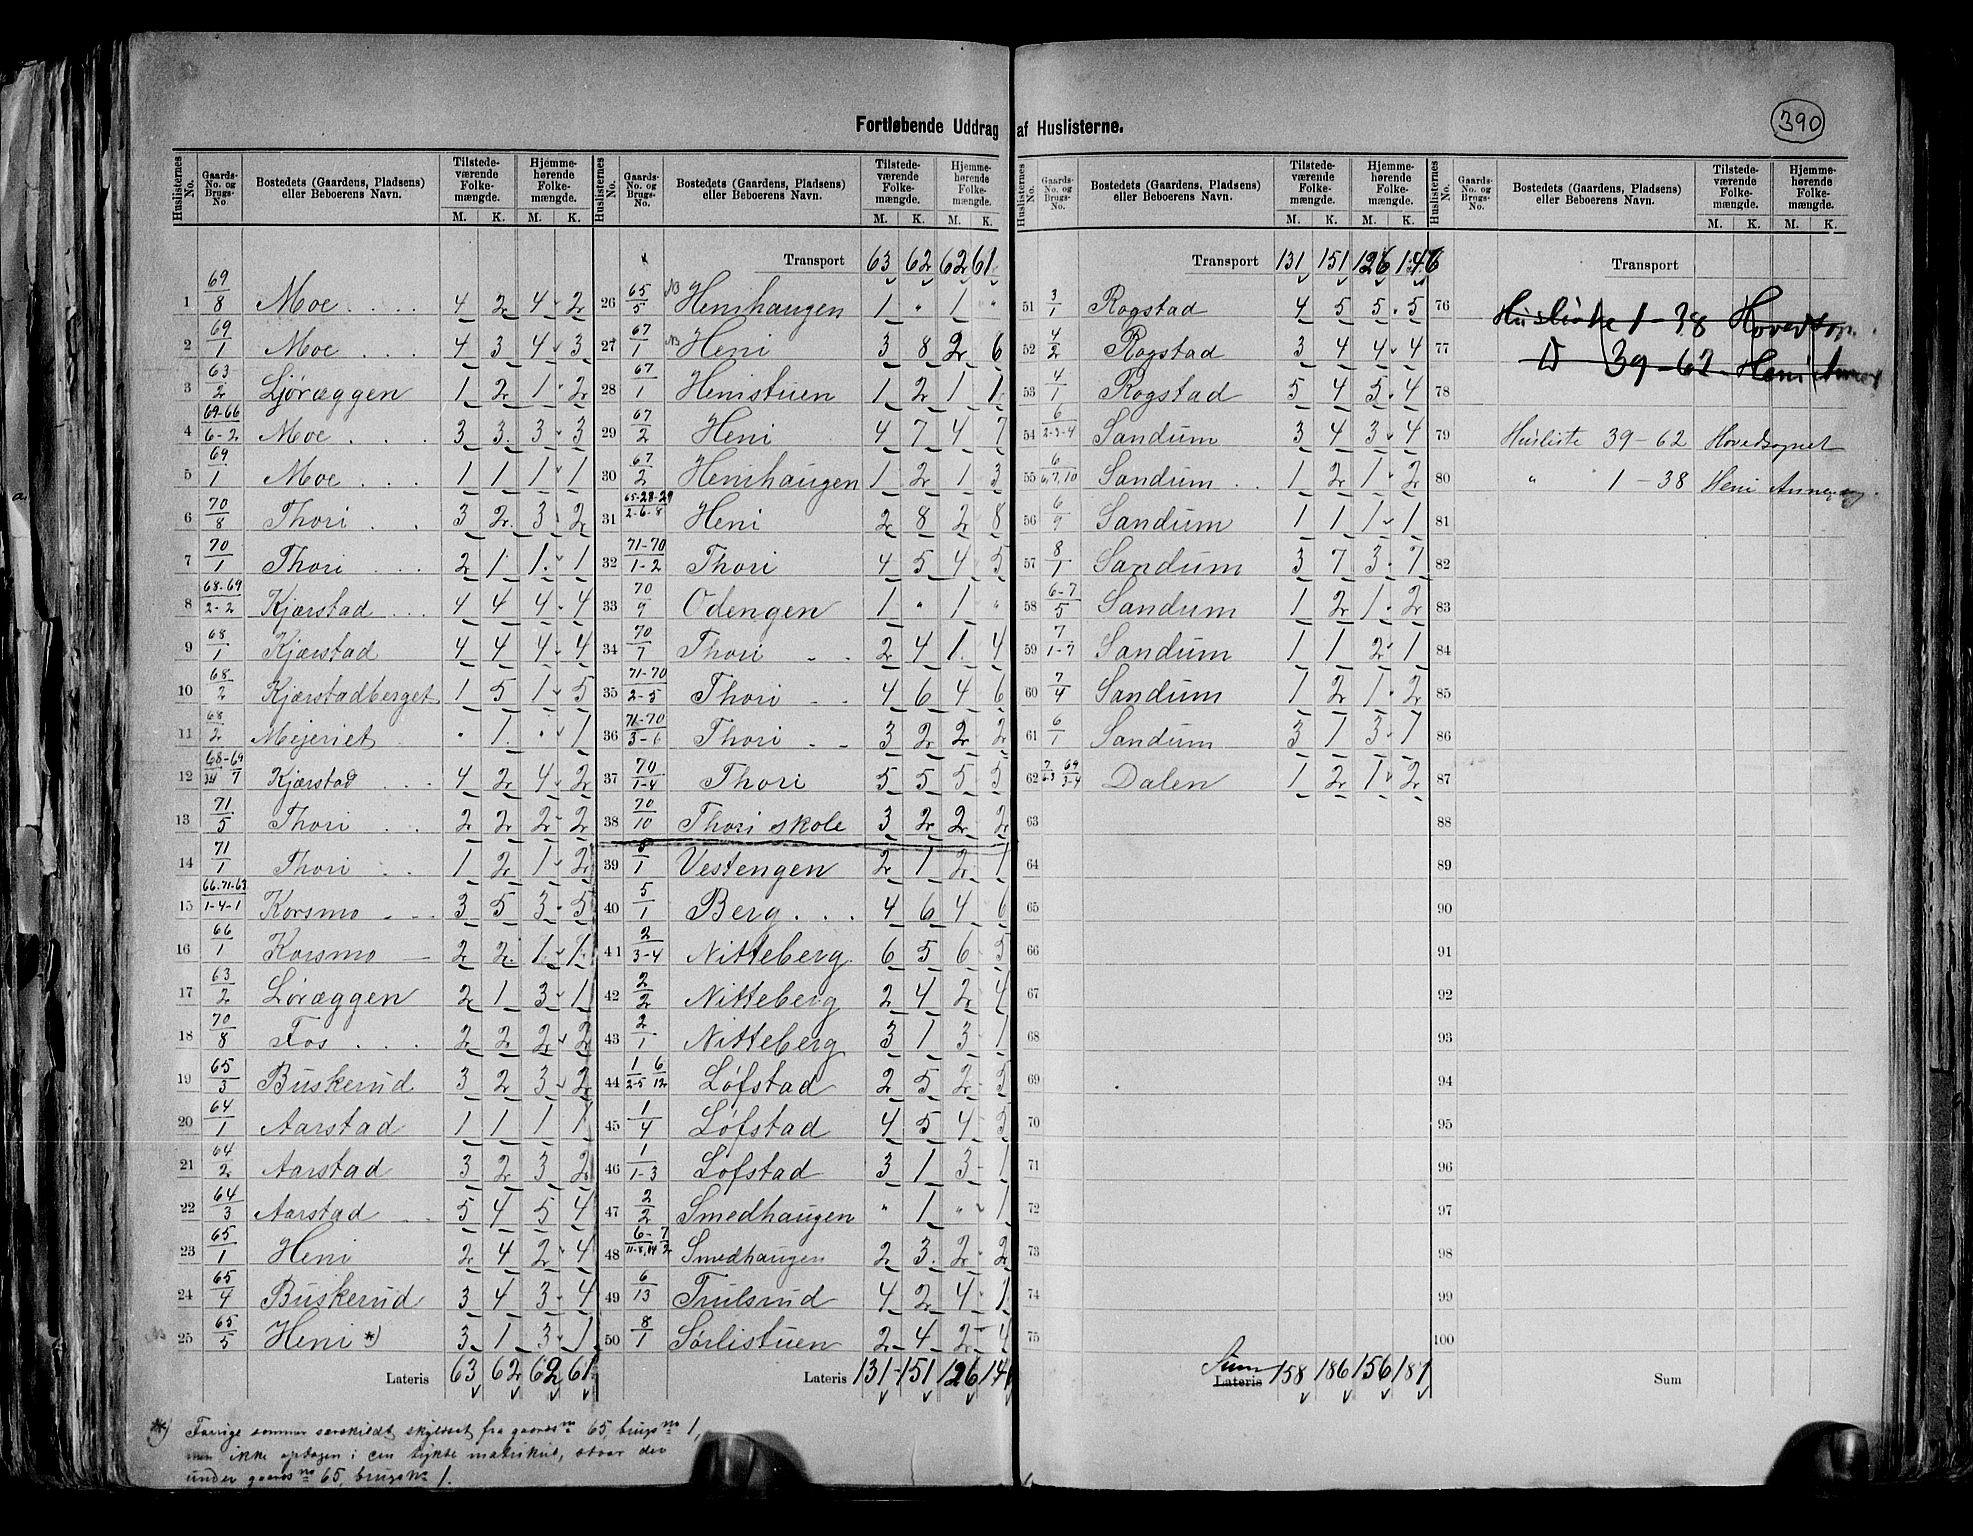 390
Fortløbende Uddrag af Huslisterne.
Huslisternes No. | Gaards-No. og Brugs-No. | Bostedets (Gaardens, Pladsens) eller Beboerens Navn. | Tilstedeværende Folkemængde. M. K. | Hjemmehørende Folkemængde. M. K.
1 69/8 Moe 4 2 4 2
2 69/1 Moe 4 3 4 3
3 63/2 Ljøræggen 1 2 1 2
4 69-66/6-2 Moe 3 3 3 3
5 69/1 Moe 1 1 1 1
6 70/8 Thori 3 2 3 2
7 70/1 Thori 2 1 1 1
8 68-69/2-2 Kjærstad 4 4 4 4
9 68/1 Kjærstad 4 4 4 4
10 68/2 Kjærstadberget 1 5 1 5
11 68/2 Mejeriet " 1 " 1
12 68-69/34 7 Kjærstad 4 2 4 2
13 71/5 Thori 2 2 2 2
14 71/1 Thori 1 2 1 2
15 66-71-63/1-4-1 Korsmo 3 5 3 5
16 66/1 Korsmo 2 2 1 1
17 63/2 Løræggen 2 1 3 1
18 70/8 Fos 2 2 2 2
19 65/3 Buskerud 3 2 3 2
20 64/1 Aarstad 1 1 1 1
21 64/2 Aarstad 3 2 3 2
22 64/3 Aarstad 5 4 5 4
23 65/1 Heni 2 4 2 4
24 65/4 Buskerud 3 4 3 4
25 65/5 Heni *) 3 1 3 1
Lateris 63 62 62 61
*) Forrige sommer særskildt skyldsat fra gaards no 65, brugs no 1,
men ikke optagen i den trykte matrikul, staar der
under gaards no 65, brugs no 1.
Transport 63 62 62 61
26 65/5 NB Henihaugen 1 " 1 "
27 67/1 NB Heni 3 8 2 6
28 67/1 Henistuen 1 2 1 1
29 67/2 Heni 4 7 4 7
30 67/2 Henihaugen 1 2 1 3
31 65-28-29/2-6-8 Heni 2 8 2 8
32 71-70/1-2 Thori 4 5 4 5
33 70/9 Odengen 1 " 1 "
34 70/7 Thori 2 4 1 4
35 71-70/2-5 Thori 4 6 4 6
36 71-70/3-6 Thori 3 2 2 2
37 70/1-4 Thori 5 5 5 5
38 70/10 Thori skole 3 2 2 2
39 8/1 Vestengen 2 1 2 1
40 5/1 Berg 4 6 4 6
41 2/3-4 Nitteberg 6 5 6 5
42 2/2 Nitteberg 2 4 2 4
43 2/1 Nitteberg 3 1 3 1
44 1/2-5 6/12 Løfstad 2 5 2 5
45 1/4 Løfstad 4 5 4 5
46 1/1-3 Løfstad 3 1 3 1
47 2/2 Smedhaugen " 1 " 1
48 6-7/11-8,14 2 Smedhaugen 2 3 2 2
49 6/13 Trulsrud 4 2 4 1
50 8/1 Sørlistuen 2 4 2 4
Lateris 131 151 126
Transport 131 151 126 146
51 3/1 Rogstad 4 5 5 5
52 4/2 Rogstad 3 4 4 4
53 4/1 Rogstad 5 4 5 4
54 6/2-3-4 Sandum 3 4 3 4
55 6/6,7,10 Sandum 1 2 1 2
56 6/9 Sandum 1 1 1 1
57 8/1 Sandum 3 7 3 7
58 6-7/5 Sandum 1 2 1 2
59 7/1-7 Sandum 1 1 2 1
60 7/4 Sandum 1 2 1 2
61 6/1 Sandum 3 1 3 1
62 7/6-3 69/3-4 Dalen 1 2 1 2
63
64
65
66
67
68
69
70
71
72
73
74
75
Sum Lateris 158 186 156 181
Transport
76 Husliste 1-38 Hovedsogn
77 D 39-62 Heni Annex
78
79 Husliste 39-62 Hovedsognet
80 " 1-38 Heni Annexsogn
81
82
83
84
85
86
87
88
89
90
91
92
93
94
95
96
97
98
99
100
Sum